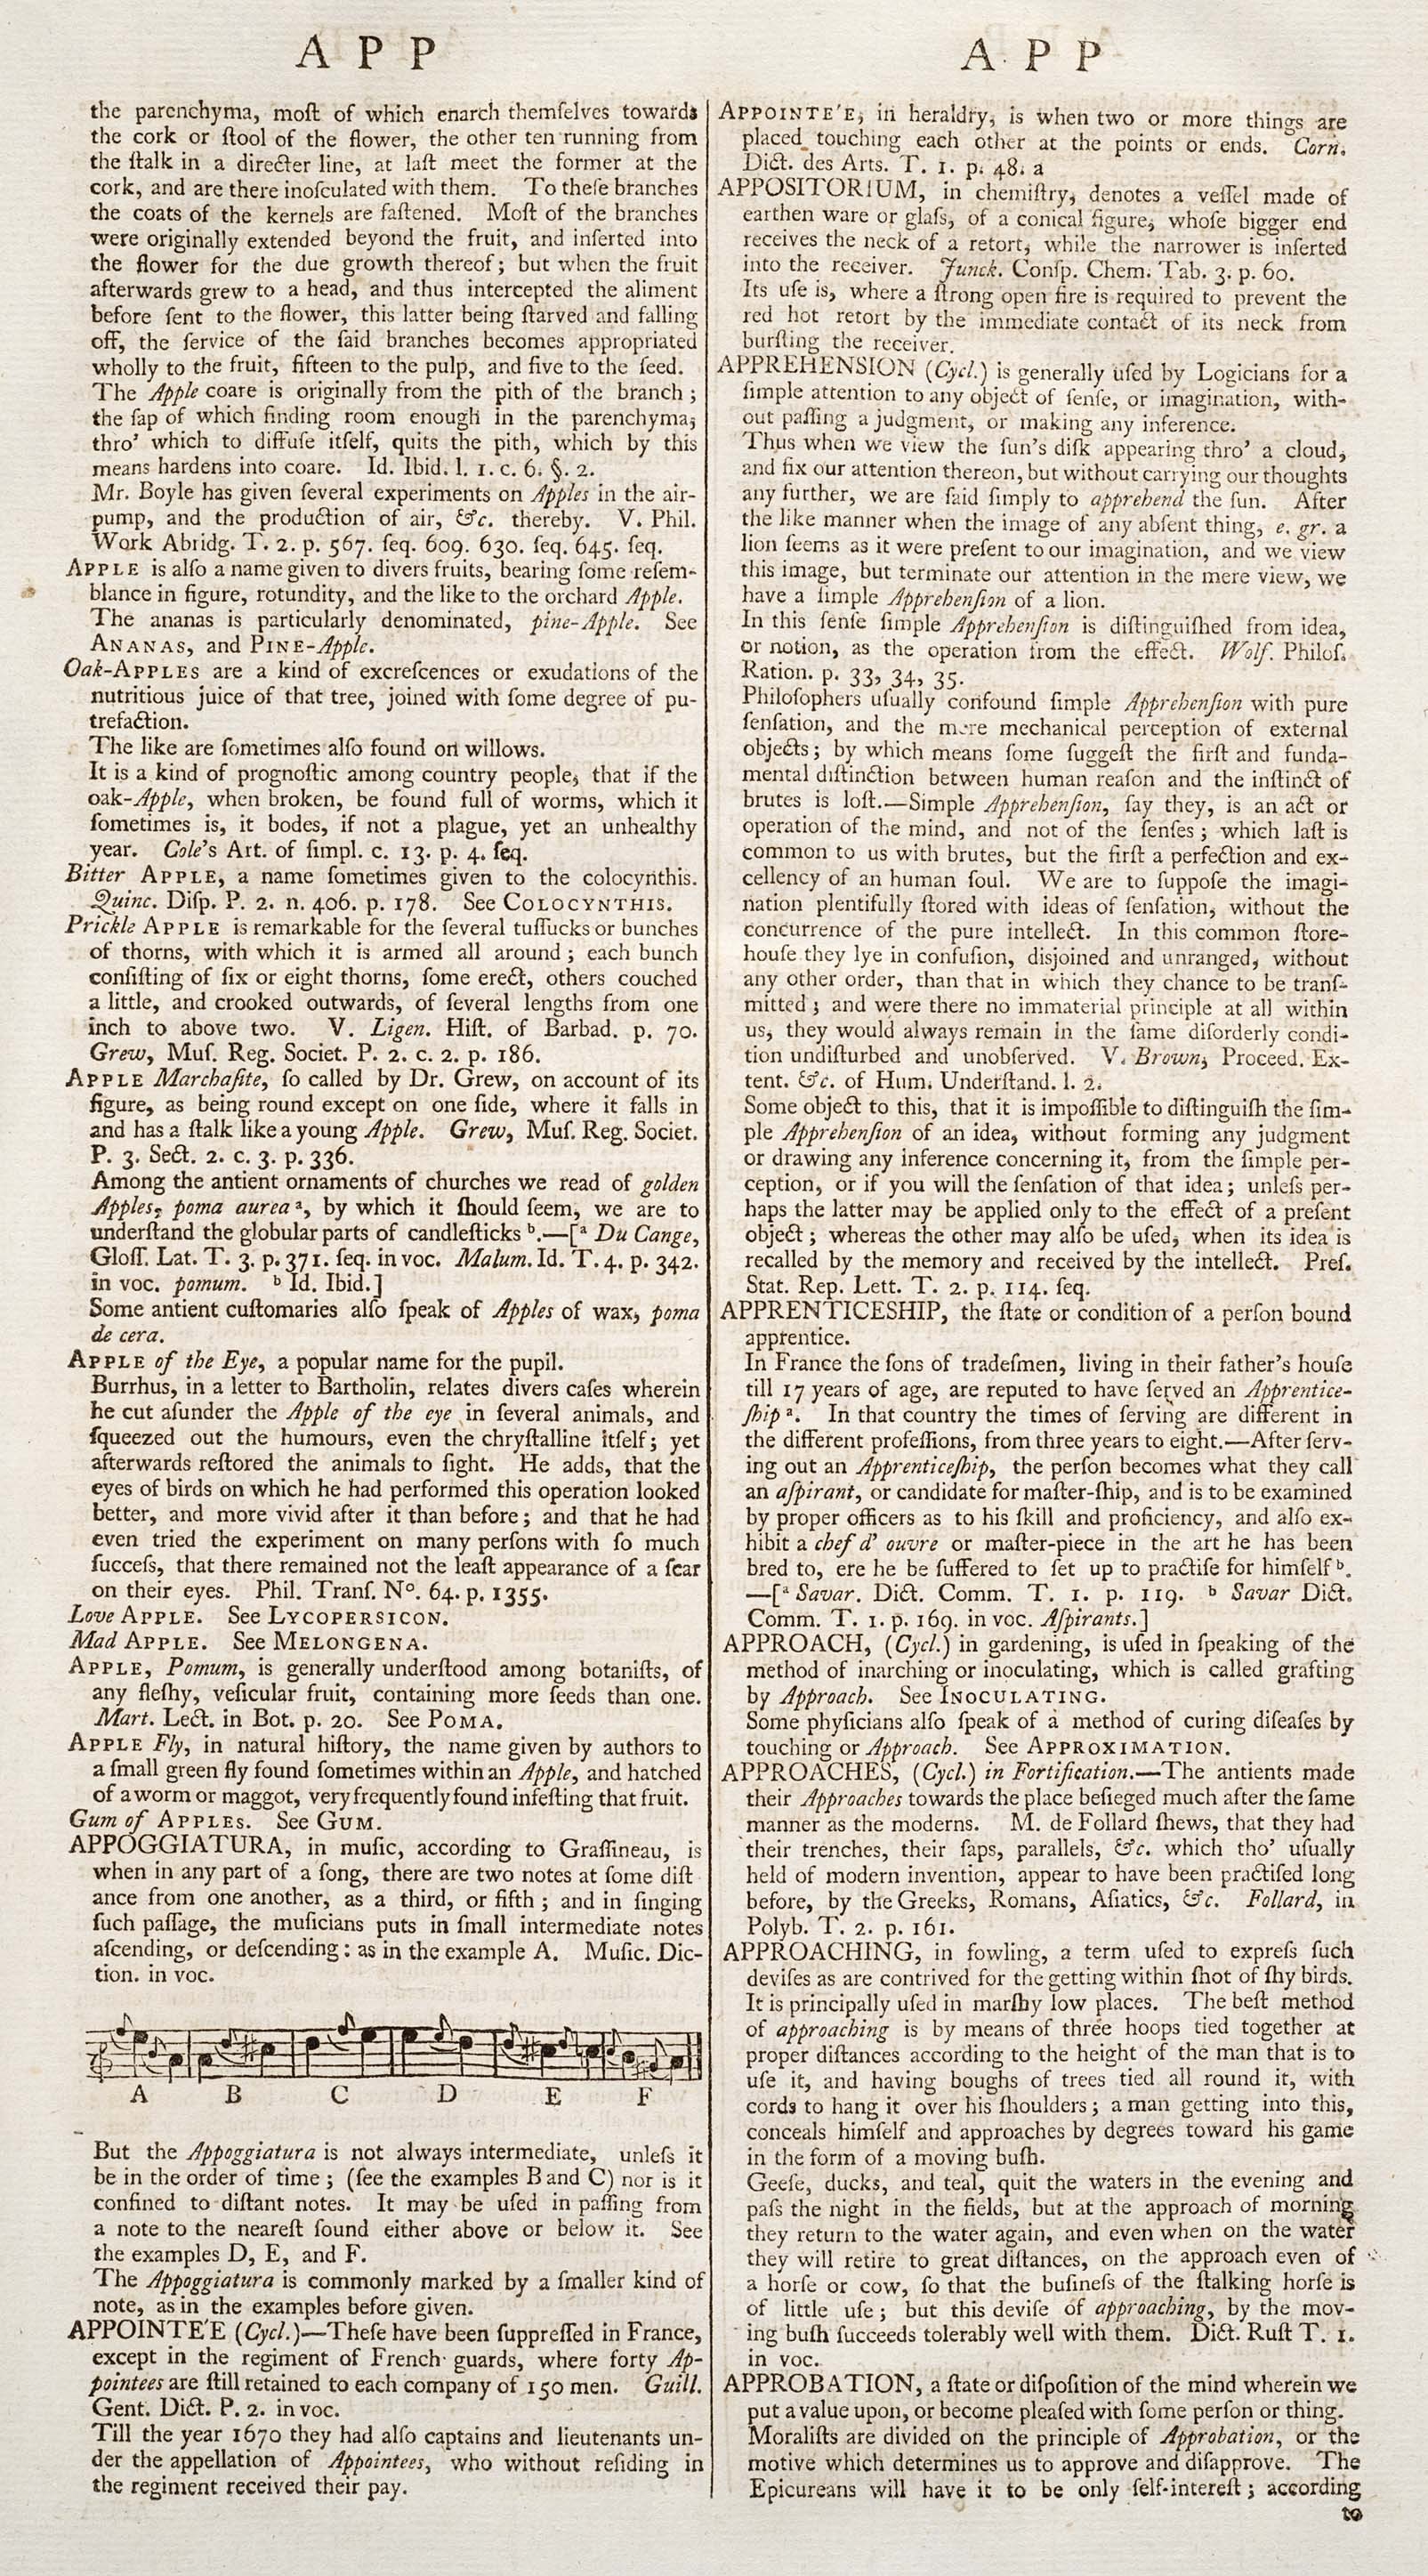 A P P
the parenchyma, moſt of which enarch themſelves towards
the cork or ſtool of the flower, the other ten running from
the ſtalk in a directer line, at laſt meet the former at the
cork, and are there inoſculated with them. To theſe branches
the coats of the kernels are faſtened. Moſt of the branches
were originally extended beyond the fruit, and inſerted into
the flower for the due growth thereof; but when the fruit
afterwards grew to a head, and thus intercepted the aliment
before ſent to the flower, this latter being ſtarved and falling
off, the ſervice of the ſaid branches becomes appropriated
wholly to the fruit, fifteen to the pulp, and five to the ſeed.
The Apple coare is originally from the pith of the branch;
the ſap of which finding room enough in the parenchyma;
thro' which to diffuſe itſelf, quits the pith, which by this
means hardens into coare. Id. Ibid. l. 1. c. 6. §. 2.
Mr. Boyle has given ſeveral experiments on Apples in the air-
pump, and the production of air, &c. thereby. V. Phil.
Work Abridg. T. 2. p. 567. ſeq. 609. 630. ſeq. 645. ſeq.
APPLE is alſo a name given to divers fruits, bearing ſome reſem-
blance in figure, rotundity, and the like to the orchard Apple.
The ananas is particularly denominated, pine-Apple. See
ANANAS, and PINE-Apple.
Oak-APPLES are a kind of excreſcences or exudations of the
nutritious juice of that tree, joined with ſome degree of pu-
trefaction.
The like are ſometimes alſo found on willows.
It is a kind of prognoſtic among country people, that if the
oak-Apple, when broken, be found full of worms, which it
ſometimes is, it bodes, if not a plague, yet an unhealthy
year. Cole's Art. of ſimpl. c. 13. p. 4. ſeq.
Bitter APPLE, a name ſometimes given to the colocynthis.
Quinc. Diſp. P. 2. n. 406. p. 178. See COLOCYNTHIS.
Prickle APPLE is remarkable for the ſeveral tuſſucks or bunches
of thorns, with which it is armed all around; each bunch
conſiſting of ſix or eight thorns, ſome erect, others couched
a little, and crooked outwards, of ſeveral lengths from one
inch to above two. V. Ligen. Hiſt. of Barbad. p. 70.
Grew, Muſ. Reg. Societ. P. 2. c. 2. p. 186.
APPLE Marchaſite, ſo called by Dr. Grew, on account of its
figure, as being round except on one ſide, where it falls in
and has a ſtalk like a young Apple. Grew, Muſ. Reg. Societ.
P. 3. Sect. 2. c. 3. p. 336.
Among the antient ornaments of churches we read of golden
Apples, poma aurea ª, by which it ſhould ſeem, we are to
underſtand the globular parts of candleſticks ᵇ.—[ª Du Cange,
Gloſſ. Lat. T. 3. p. 371. ſeq. in voc. Malum. Id. T. 4. p. 342.
in voc. pomum. ᵇ Id. Ibid.]
Some antient cuſtomaries alſo ſpeak of Apples of wax, poma
de cera.
APPLE of the Eye, a popular name for the pupil.
Burrhus, in a letter to Bartholin, relates divers caſes wherein
he cut aſunder the Apple of the eye in ſeveral animals, and
ſqueezed out the humours, even the chryſtalline itſelf; yet
afterwards reſtored the animals to ſight. He adds, that the
eyes of birds on which he had performed this operation looked
better, and more vivid after it than before; and that he had
even tried the experiment on many perſons with ſo much
ſucceſs, that there remained not the leaſt appearance of a ſcar
on their eyes. Phil. Tranſ. Nº. 64. p. 1355.
Love APPLE. See LYCOPERSICON.
Mad APPLE. See MELONGENA.
APPLE, Pomum, is generally underſtood among botaniſts, of
any fleſhy, veſicular fruit, containing more ſeeds than one.
Mart. Lect. in Bot. p. 20. See POMA.
APPLE Fly, in natural hiſtory, the name given by authors to
a ſmall green fly found ſometimes within an Apple, and hatched
of a worm or maggot, very frequently found infeſting that fruit.
Gum of APPLES. See GUM.
APPOGGIATURA, in muſic, according to Graſſineau, is
when in any part of a ſong, there are two notes at ſome diſt
ance from one another, as a third, or fifth; and in ſinging
ſuch paſſage, the muſicians puts in ſmall intermediate notes
aſcending, or deſcending: as in the example A. Muſic. Dic-
tion. in voc.
A B C D E F
But the Appoggiatura is not always intermediate, unleſs it
be in the order of time; (ſee the examples B and C) nor is it
confined to diſtant notes. It may be uſed in paſſing from
a note to the neareſt ſound either above or below it. See
the examples D, E, and F.
The Appoggiatura is commonly marked by a ſmaller kind of
note, as in the examples before given.
APPOINTE'E (Cycl.)—Theſe have been ſuppreſſed in France,
except in the regiment of French guards, where forty Ap-
pointees are ſtill retained to each company of 150 men. Guill.
Gent. Dict. P. 2. in voc.
Till the year 1670 they had alſo captains and lieutenants un-
der the appellation of Appointees, who without reſiding in
the regiment received their pay.
A P P
APPOINTE'E, in heraldry, is when two or more things are
placed touching each other at the points or ends. Corn.
Dict. des Arts. T. 1. p. 48. a
APPOSITORIUM, in chemiſtry, denotes a veſſel made of
earthen ware or glaſs, of a conical figure, whoſe bigger end
receives the neck of a retort, while the narrower is inſerted
into the receiver. Junck. Conſp. Chem. Tab. 3. p. 60.
Its uſe is, where a ſtrong open fire is required to prevent the
red hot retort by the immediate contact of its neck from
burſting the receiver.
APPREHENSION (Cycl.) is generally uſed by Logicians for a
ſimple attention to any object of ſenſe, or imagination, with-
out paſſing a judgment, or making any inference.
Thus when we view the ſun's diſk appearing thro' a cloud,
and fix our attention thereon, but without carrying our thoughts
any further, we are ſaid ſimply to apprehend the ſun. After
the like manner when the image of any abſent thing, e. gr. a
lion ſeems as it were preſent to our imagination, and we view
this image, but terminate our attention in the mere view, we
have a ſimple Apprehenſion of a lion.
In this ſenſe ſimple Apprehenſion is diſtinguiſhed from idea,
or notion, as the operation from the effect. Wolf. Philoſ.
Ration. p. 33, 34, 35.
Philoſophers uſually confound ſimple Apprehenſion with pure
ſenſation, and the mere mechanical perception of external
objects; by which means ſome ſuggeſt the firſt and funda-
mental diſtinction between human reaſon and the inſtinct of
brutes is loſt.—Simple Apprehenſion, ſay they, is an act or
operation of the mind, and not of the ſenſes; which laſt is
common to us with brutes, but the firſt a perfection and ex-
cellency of an human ſoul. We are to ſuppoſe the imagi-
nation plentifully ſtored with ideas of ſenſation, without the
concurrence of the pure intellect. In this common ſtore-
houſe they lye in confuſion, disjoined and unranged, without
any other order, than that in which they chance to be tranſ-
mitted; and were there no immaterial principle at all within
us, they would always remain in the ſame diſorderly condi-
tion undiſturbed and unobſerved. V. Brown, Proceed. Ex-
tent. &c. of Hum. Underſtand. l. 2.
Some object to this, that it is impoſſible to diſtinguiſh the ſim-
ple Apprehenſion of an idea, without forming any judgment
or drawing any inference concerning it, from the ſimple per-
ception, or if you will the ſenſation of that idea; unleſs per-
haps the latter may be applied only to the effect of a preſent
object; whereas the other may alſo be uſed, when its idea is
recalled by the memory and received by the intellect. Preſ.
Stat. Rep. Lett. T. 2. p. 114. ſeq.
APPRENTICESHIP, the ſtate or condition of a perſon bound
apprentice.
In France the ſons of tradeſmen, living in their father's houſe
till 17 years of age, are reputed to have ſerved an Apprentice-
ſhip ª. In that country the times of ſerving are different in
the different profeſſions, from three years to eight.—After ſerv-
ing out an Apprenticeſhip, the perſon becomes what they call
an aſpirant, or candidate for maſter-ſhip, and is to be examined
by proper officers as to his ſkill and proficiency, and alſo ex-
hibit a chef d' ouvre or maſter-piece in the art he has been
bred to, ere he be ſuffered to ſet up to practiſe for himſelf ᵇ.
—[ª Savar. Dict. Comm. T. 1. p. 119. ᵇ Savar Dict.
Comm. T. 1. p. 169. in voc. Aſpirants.]
APPROACH, (Cycl.) in gardening, is uſed in ſpeaking of the
method of inarching or inoculating, which is called grafting
by Approach. See INOCULATING.
Some phyſicians alſo ſpeak of a method of curing diſeaſes by
touching or Approach. See APPROXIMATION.
APPROACHES, (Cycl.) in Fortification.—The antients made
their Approaches towards the place beſieged much after the ſame
manner as the moderns. M. de Follard ſhews, that they had
their trenches, their ſaps, parallels, &c. which tho' uſually
held of modern invention, appear to have been practiſed long
before, by the Greeks, Romans, Aſiatics, &c. Follard, in
Polyb. T. 2. p. 161.
APPROACHING, in fowling, a term uſed to expreſs ſuch
deviſes as are contrived for the getting within ſhot of ſhy birds.
It is principally uſed in marſhy low places. The beſt method
of approaching is by means of three hoops tied together at
proper diſtances according to the height of the man that is to
uſe it, and having boughs of trees tied all round it, with
cords to hang it over his ſhoulders; a man getting into this,
conceals himſelf and approaches by degrees toward his game
in the form of a moving buſh.
Geeſe, ducks, and teal, quit the waters in the evening and
paſs the night in the fields, but at the approach of morning
they return to the water again, and even when on the water
they will retire to great diſtances, on the approach even of
a horſe or cow, ſo that the buſineſs of the ſtalking horſe is
of little uſe; but this deviſe of approaching, by the mov-
ing buſh ſucceeds tolerably well with them. Dict. Ruſt T. 1.
in voc.
APPROBATION, a ſtate or diſpoſition of the mind wherein we
put a value upon, or become pleaſed with ſome perſon or thing.
Moraliſts are divided on the principle of Approbation, or the
motive which determines us to approve and diſapprove. The
Epicureans will have it to be only ſelf-intereſt; according
to